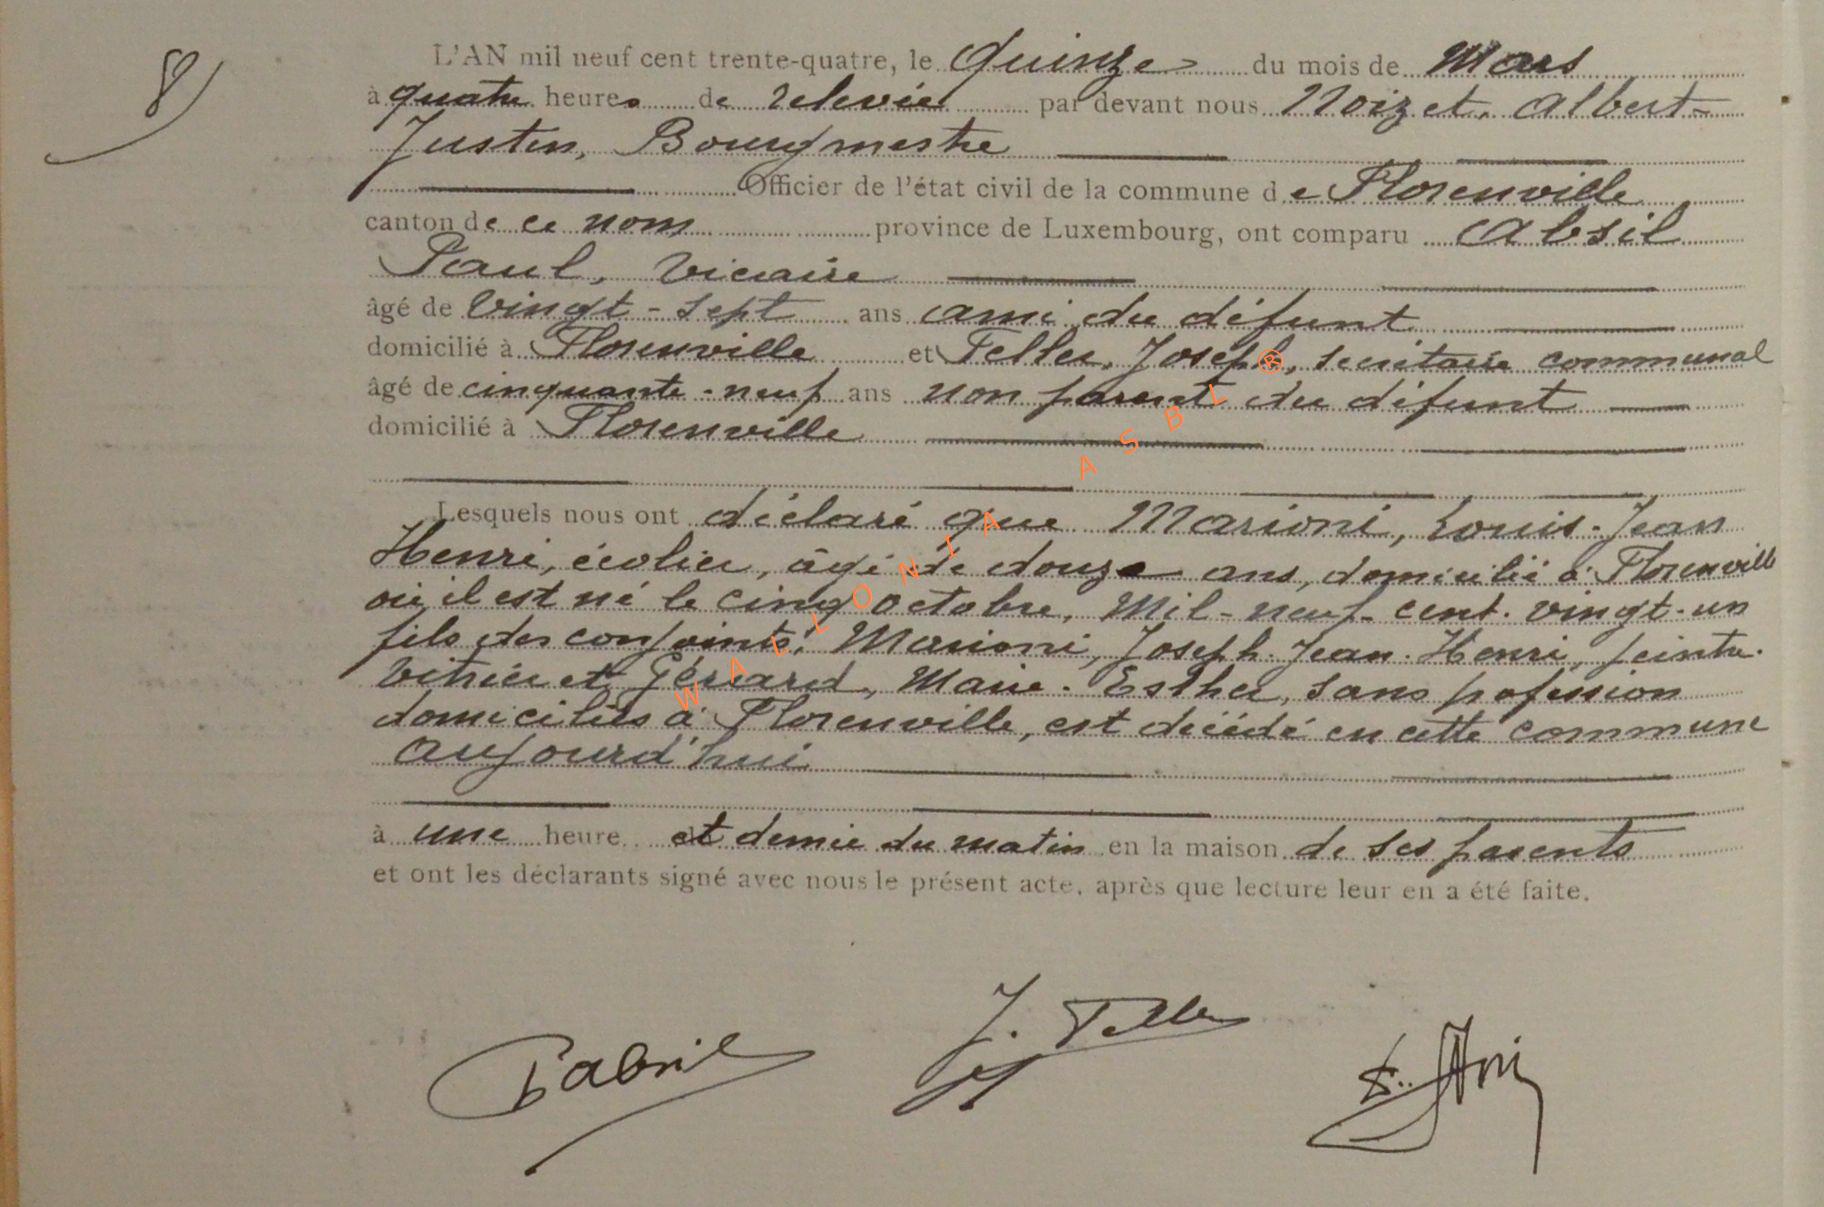 8
L'AN mil neuf cent trente-quatre, le quinze du mois de Mars
à quatre heures de relevée par devant nous Noizet, Albert-
Justin, Bourgmestre
Officier de l'état civil de la commune de Florenville
canton de ce nom province de Luxembourg, ont comparu Absil
Paul, Vicaire
âgé de vingt-sept ans ami du défunt
domicilié à Florenville et Feller, Joseph, secrétaire communal
âgé de cinquante-neuf ans non parent du défunt
domicilié à Florenville
Lesquels nous ont déclaré que Marioni, Louis-Jean
Henri, écolier, âgé de douze ans, domicilié à Florenville
où il est né le cinq octobre, Mil-neuf-cent-vingt-un
fils des conjoints: Marioni, Joseph-Jean-Henri, peintre-
vitrier et Gérard, Marie-Esther, sans profession
domiciliés à Florenville, est décédé en cette commune
aujourd'hui
à une heure et demie du matin en la maison de ses parents
et ont les déclarants signé avec nous le présent acte, après que lecture leur en a été faite.
J. Feller
WALLONIA ASBL ®